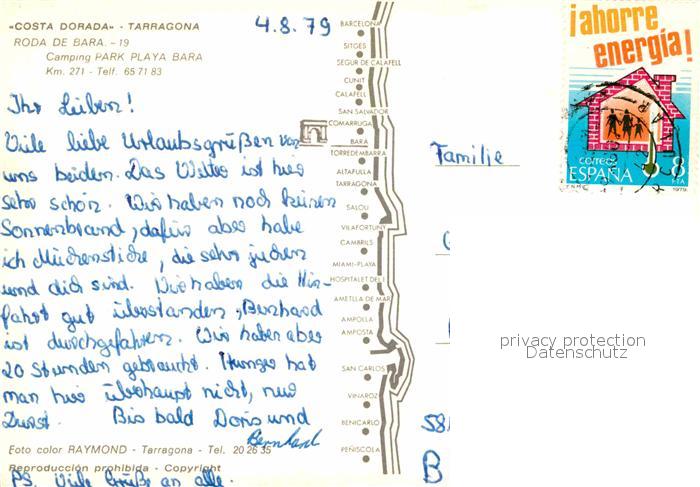 «COSTA DORADA» - TARRAGONA
RODA DE BARA. - 19
Camping PARK PLAYA BARA
Km. 271 - Telf. 65 71 83
4.8.79
Ihr Lieben!
Viele liebe Urlaubsgrüßen von
uns beiden. Das Wetter ist hier
sehr schön. Wir haben noch keinen
Sonnenbrand, dafür aber habe
ich Mückenstiche, die sehr jucken
und dick sind. Wir haben die Hin-
fahrt gut überstanden, Bernhard
ist durchgefahren. Wir haben aber
20 Stunden gebraucht. Hunger hat
man hier überhaupt nicht, nur
Durst. Bis bald Doris und
Bernhard
Foto color RAYMOND - Tarragona - Tel. 20 26 35
Reproducción prohibida - Copyright
PS. Viele Grüße an alle.
BARCELONA
SITGES
SEGUR DE CALAFELL
CUNIT
CALAFELL
SAN SALVADOR
COMARRUGA
BARA
TORREDEMBARRA
ALTAFULLA
TARRAGONA
SALOU
VILAFORTUNY
CAMBRILS
MIAMI-PLAYA
HOSPITALET DEL I.
AMETLLA DE MAR
AMPOLLA
AMPOSTA
SAN CARLOS
VINAROZ
BENICARLO
PEÑISCOLA
¡ahorre
energía!
correos
ESPAÑA
8
PTA
1979
Familie
privacy protection
Datenschutz
58
B